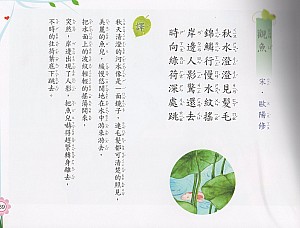 觀魚
宋．歐陽修
秋水澄澄見髮毛
錦鱗行慢水紋搖
岸邊人影驚還去
時向綠荷深處跳
譯
秋天清澄的河水像是一面鏡子，連毛髮都可清楚的照見，
美麗的魚兒，緩慢悠閒地在水中游來游去，
把水面上的波紋輕輕的蕩漾開來。
突然，岸邊出現了人影，把魚兒嚇得趕緊轉身離去，
不時的往荷葉底下跳去。